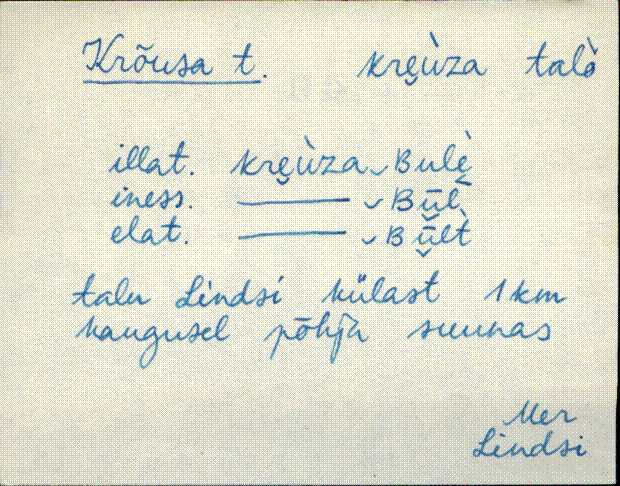 Krõusa t. kre̮ùza talò
illat. kre̮ùza ̮ Bulè̮
iness. ——— ̮ Bū̮l
elat. ——— ̮ Bū̮lt̀
talu Lindsi külast 1 km
kaugusel põhja suunas
Mer
Lindsi